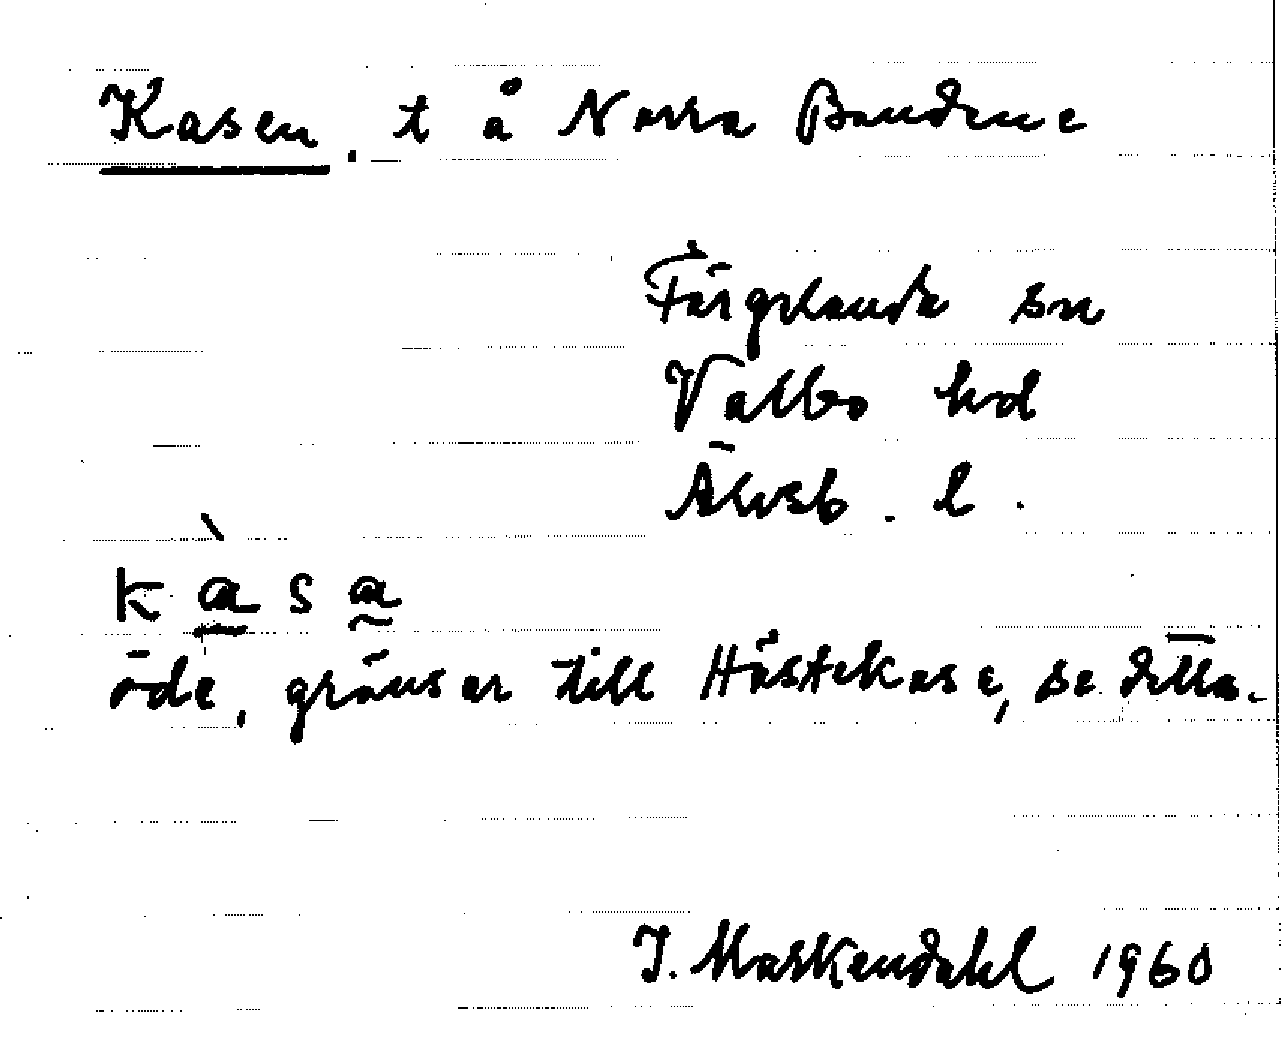 Kasen, t å Norra Bandene
Färgelanda sn
Valbo hd
Älvsb. l.
k à s a
öde, gränsar till Hästekase, se detta.
I. Maskendahl 1960